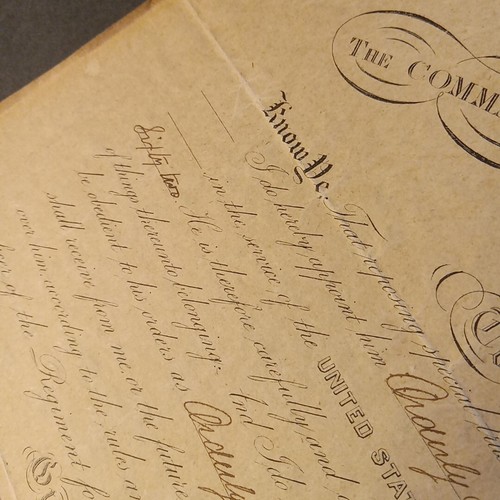 THE COMMA
Know Ye, That reposing special trus
I do hereby appoint him Orderly
in the service of the UNITED STA
Sixty two He is therefore carefully and
of things thereunto belonging. And I do
be obedient to his orders as Orderly
shall receive from me, or the future
over him according to the rules an
the Regiment fo